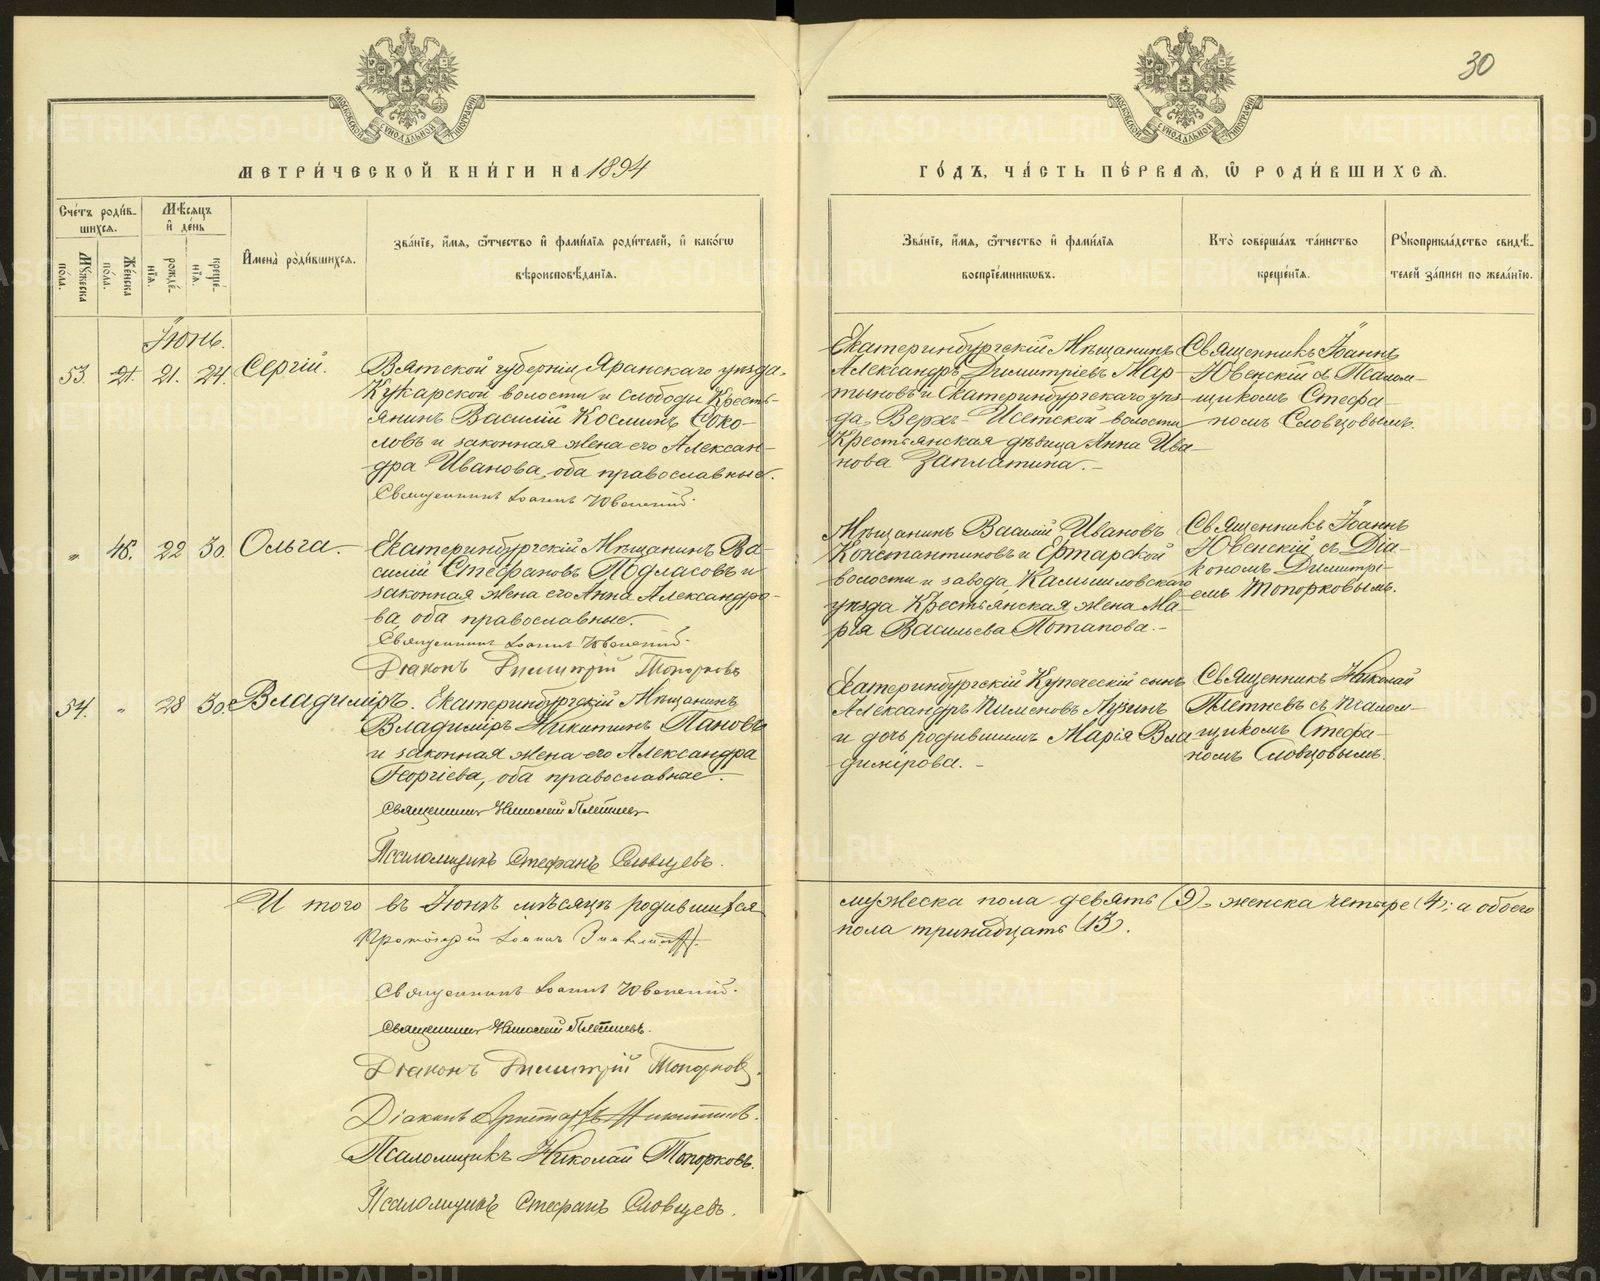 30
МОСКОВСКОЙ СѴНОДАЛЬНОЙ ТИПОГРАФІИ
МОСКОВСКОЙ СѴНОДАЛЬНОЙ ТИПОГРАФІИ
МЕТРИ́ЧЕСКОЙ КНИ́ГИ НА 1894
ГО́ДЪ, ЧА́СТЬ ПЕ́РВАЯ, Ѽ РОДИ́ВШИХСЯ.
Сче́тъ роди́в-
шихся.
Мѣ́сяцъ
и҆ де́нь
Му́жеска
по́ла.
Же́нска
по́ла.
рожде́-
нїя.
креще́-
нїя.
И҆мена̀ роди́вшихся.
Зва́нїе, и҆́мя, ѻ҆́тчество и҆ фами́лїя роди́телей, и҆ како́гѡ
вѣроисповѣ́данїя.
Зва́нїе, и҆́мя, ѻ҆́тчество и҆ фами́лїя
воспрїе́мниковъ.
Кто̀ соверша́лъ та́инство
креще́нїя.
Рꙋкоприкла́дство свидѣ́-
телей за́писи по жела́нїю.
Іюнь.
53. 21. 21. 24. Сергій.
Вятской губерніи, Яранскаго уѣзда,
Кукарской волости и слободы Кресть-
янинъ Василій Косминъ Соко-
ловъ и законная жена его Алексан-
дра Иванова, оба православные.
Священникъ Іоаннъ Ювенскій.
Екатеринбургскій Мѣщанинъ
Александръ Димитріевъ Мар-
тыновъ и Екатеринбургскаго уѣз-
да, Верхъ-Исетской волости
Крестьянская дѣвица Анна Ива-
нова Заплатина.-
Священникъ Іоаннъ
Ювенскій съ Псалом-
щикомъ Стефа-
номъ Словцовымъ.
„ 46. 22 30. Ольга.
Екатеринбургскій Мѣщанинъ Ва-
силій Стефановъ Подласовъ и
законная жена его Анна Александро-
ва, оба православные.
Священникъ Іоаннъ Ювенскій.
Діаконъ Димитрій Топорковъ
Мѣщанинъ Василій Ивановъ
Константиновъ и Ертарской
волости и завода Камышловскаго
уѣзда Крестьянская жена Ма-
рія Васильева Потапова.-
Священникъ Іоаннъ
Ювенскій съ Діа-
кономъ Димитрі-
емъ Топорковымъ.
54. „ 28 30. Владиміръ.
Екатеринбургскій Мѣщанинъ
Владиміръ Никитинъ Пановъ
и законная жена его Александра
Георгіева, оба православные.
Священникъ Николай Плетневъ
Псаломщикъ Стефанъ Словцевъ.
Екатеринбургскій Купеческій сынъ
Александръ Пименовъ Лузинъ
и дочь родившимъ Марія Вла-
димірова. -
Священникъ Николай
Плетневъ съ Псалом-
щикомъ Стефа-
номъ Словцовымъ.
И того въ Іюнѣ мѣсяцѣ родившихся
мужеска пола девять (9), женска четыре (4); а обоего
пола тринадцать (13).
Протоіерей Іоаннъ
Священникъ Іоаннъ Ювенскій.
Священникъ Николай Плетневъ.
Діаконъ Димитрій Топорковъ.
Діаконъ Аристархъ Никитинъ.
Псаломщикъ Николай Топорковъ.
Псаломщикъ Стефанъ Словцевъ.
METRIKI.GASO-URAL.RU